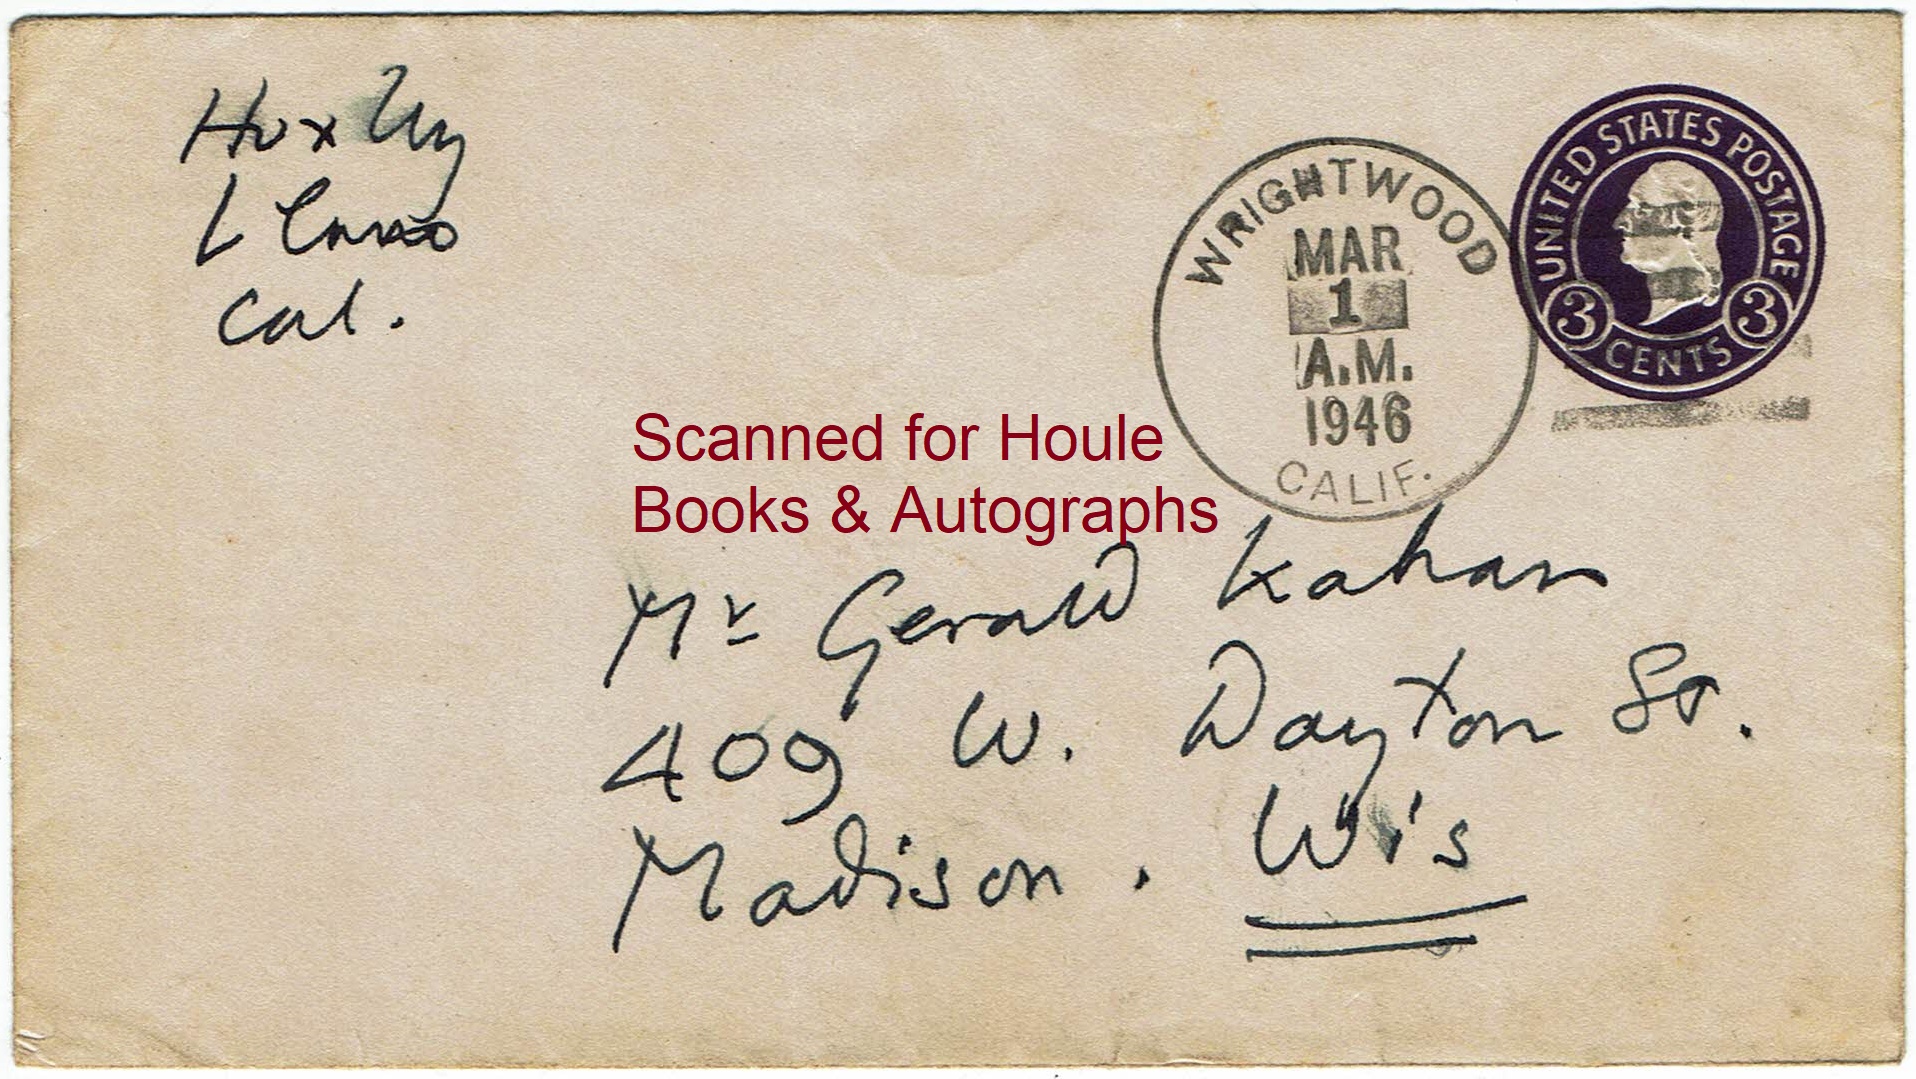 Huxley
Llano
Cal.
WRIGHTWOOD
MAR
1
A.M.
1946
CALIF.
UNITED STATES POSTAGE
3 CENTS 3
Scanned for Houle
Books & Autographs
Mr Gerald Kahan
409 W. Dayton St.
Madison. Wis